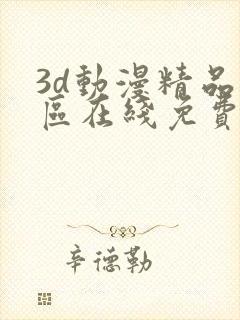 3d動漫精品
區在綫免費
辛德勒